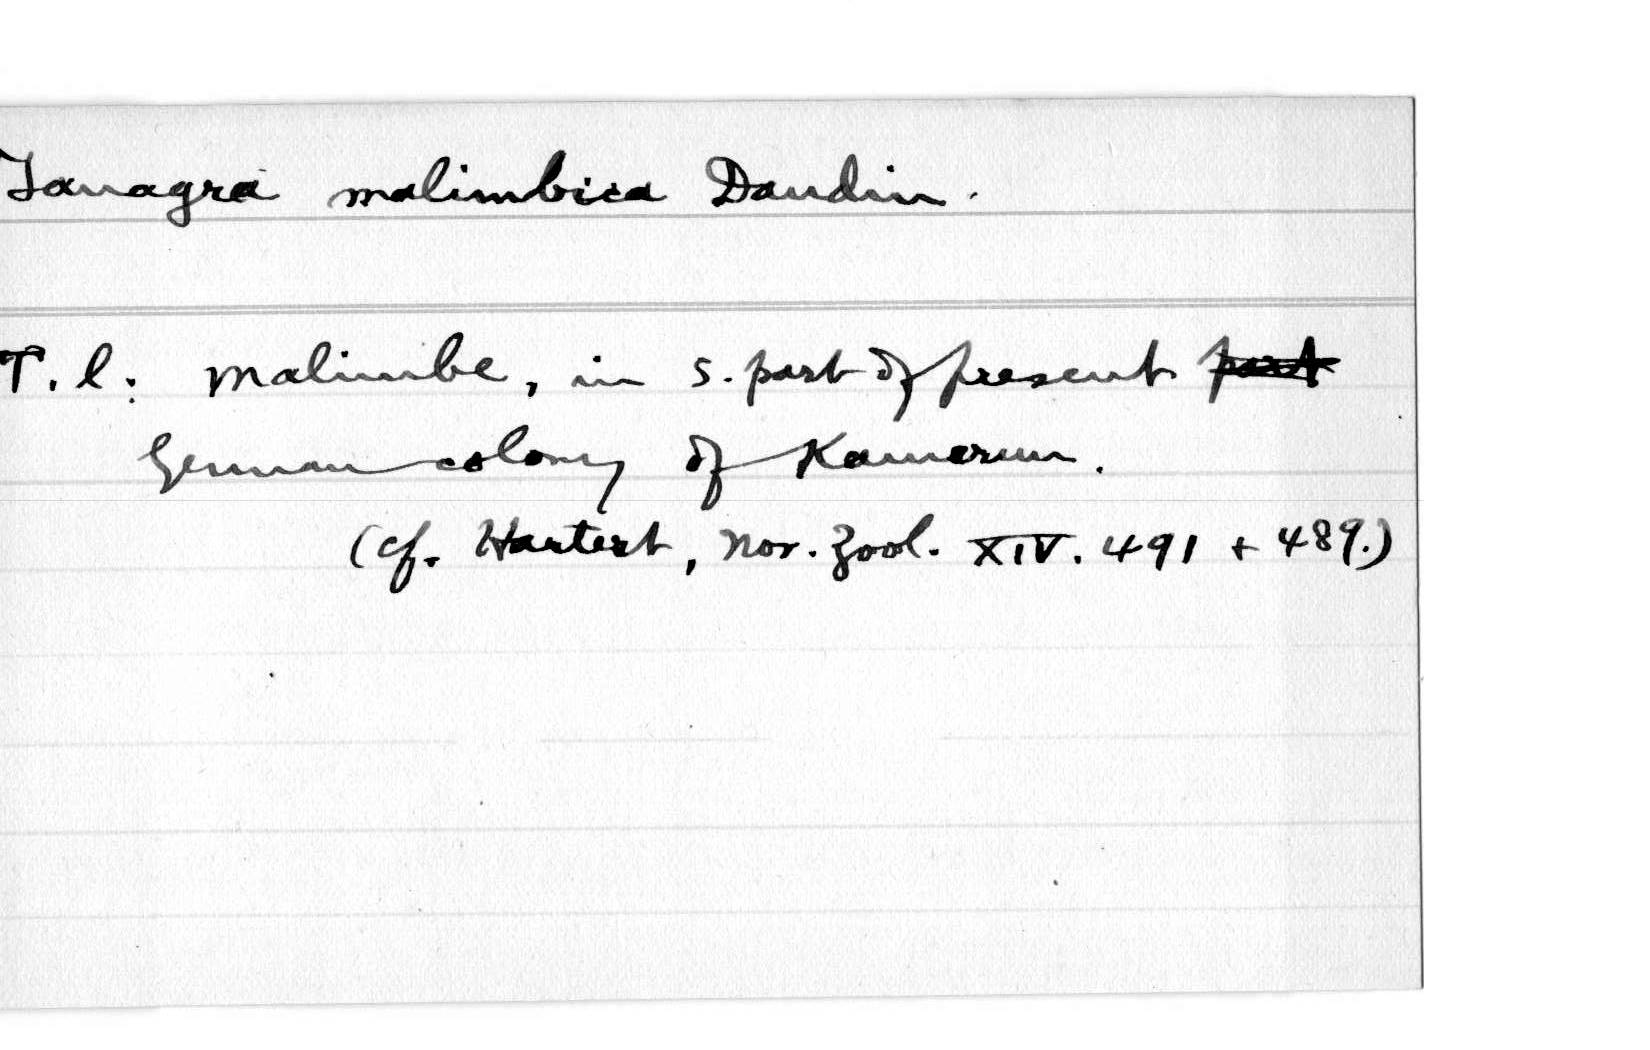 Tanagra malimbica Daudin.
T. l.: Malimbe, in S. part of present part
German colony of Kamerun.
(cf. Hartert, Nov. Zool. XIV. 491 + 489.)